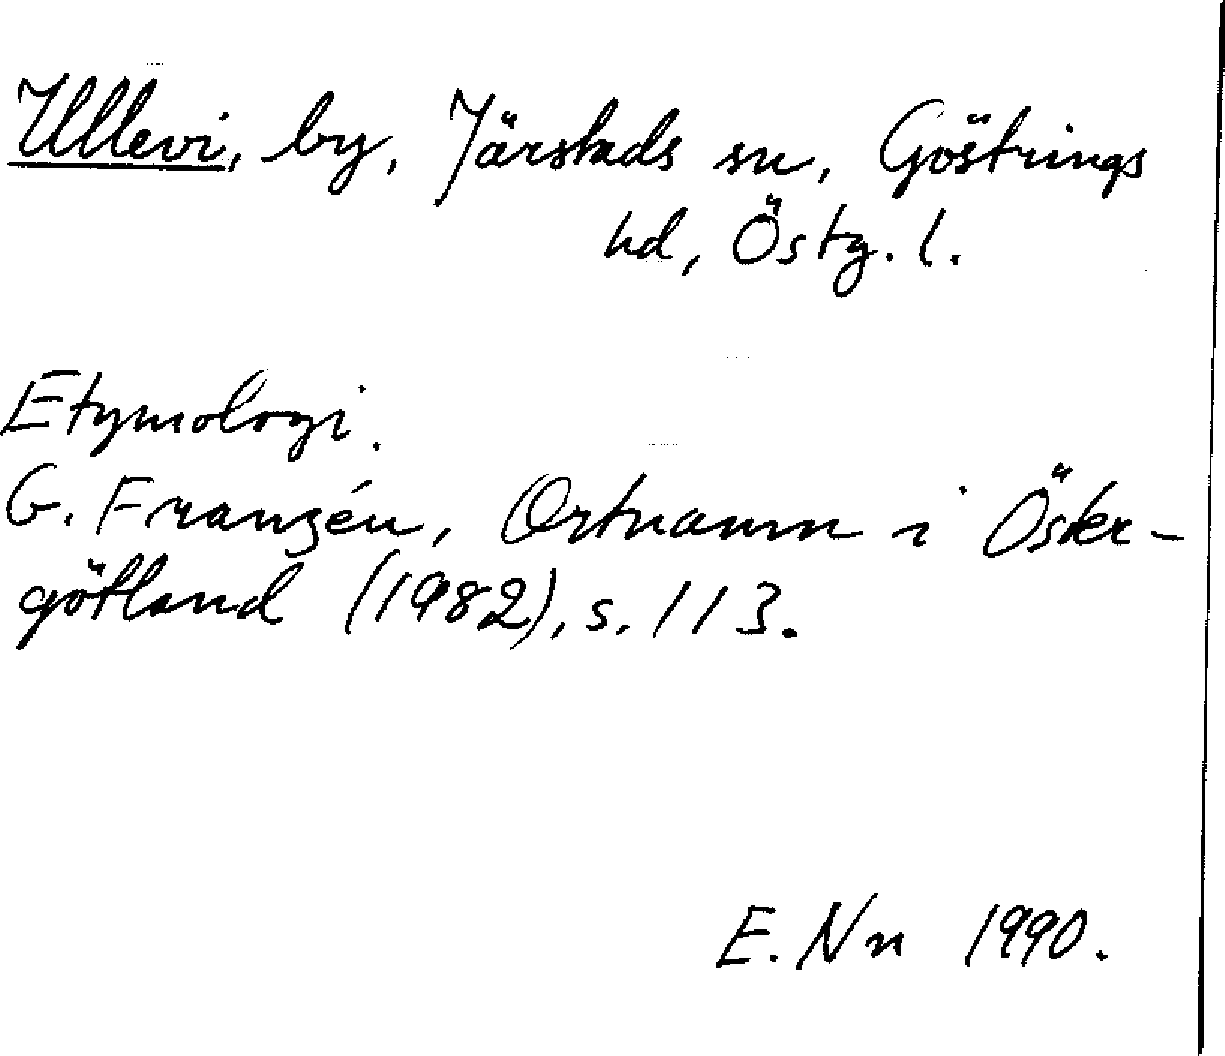 Ullevi, by, Järstads sn, Göstrings
hd, Östg. l.
Etymologi.
G. Franzén, Ortnamn i Öster-
götland (1982), s. 113.
E. Nn 1990.